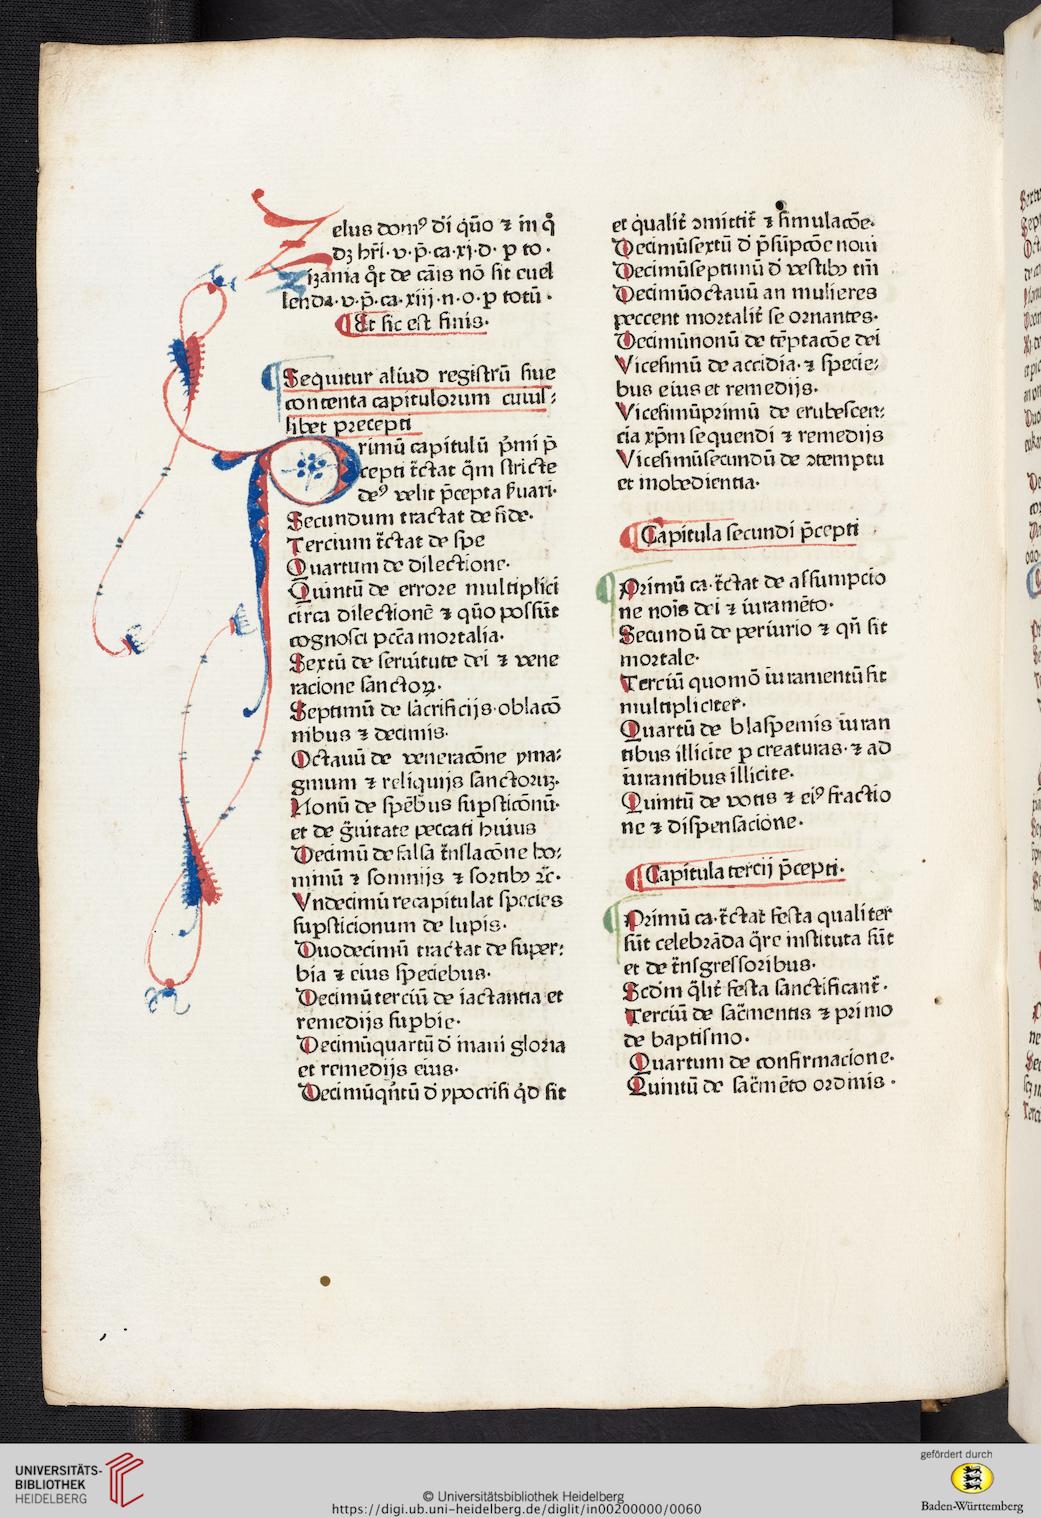 Zelus domꝰ dī q̇ūo ⁊ in q̊
dꝫ hr̄i·v·p̄·ca·xj·d·ꝑ to·
Zizania q̊t de cāis nō sit euel
lenda·v·p̄·ca·xiij·n·o·ꝑ totū·
Et sic est finis·
Sequitur aliud registrū siue
contenta capitulorum cuius⸗
libet precepti
Primū capitulū p̓mi p̄
cepti tc̄tat qm̄ stricte
deꝰ velit p̄cepta ẜuari·
Secundum tractat de fide·
Tercium tc̄tat de spe
Quartum de dilectione·
Quintū de errore multiplici
circa dilectionē ⁊ qūo possūt
cognosci pcc̄a mortalia·
Sextū de seruitute dei ⁊ vene
racione sanctoꝝ·
Septimū de sacrificijs·oblacō
nibus ⁊ decimis·
Octauū de veneracōne yma⸗
ginum ⁊ reliquijs sanctoruꝫ·
Nonū de spēbus supsticōnū·
et de g̈uitate peccati huius
Decimū de falsa tn̄slacōne ho⸗
minū ⁊ somnijs ⁊ sortibꝫ ⁊c̄·
Vndecimū recapitulat species
supsticionum de lupis·
Duodecimū tractat de super⸗
bia ⁊ eius speciebus·
Decimūterciū de iactantia et
remedijs supbie·
Decimūquartū d̄ inani gloria
et remedijs eius·
Decimūqn̄tū d̄ ypocrisi q̇d sit
et qualit̄ ꝯmittit̄ ⁊ simulacōe·
Decimūsextū d̄ p̄sūpcōe noui
Decimūseptimū d̄ vestibꝫ tm̄
Decimūoctauū an mulieres
peccent mortalit̄ se ornantes·
Decimūnonū de tēptacōe dei
Vicesimū de accidia·⁊ specie⸗
bus eius et remedijs·
Vicesimūprimū de erubescen⸗
cia xp̄m sequendi ⁊ remedijs
Vicesimūsecundū de ꝯtemptu
et inobedientia·
Capitula secundi p̄cepti
Primū ca·tc̄tat de assumpcio
ne nois̄ dei ⁊ iuramēto·
Secundū de periurio ⁊ qn̄ sit
mortale·
Terciū quomō iuramentū fit
multipliciter·
Quartū de blaspemis iuran
tibus illicite p creaturas·⁊ ad
iurantibus illicite·
Quintū de votis ⁊ eiꝰ fractio
ne ⁊ dispensacione·
Capitula tercij p̄cepti·
Primū ca·tc̄tat festa qualiter
sūt celebrāda q̈re instituta sūt
et de tn̄sgressoribus·
Scdm̄ q̄lit̄ festa sanctificant̄·
Terciū de sac̄mentis ⁊ primo
de baptismo·
Quartum de confirmacione·
Quintū de sac̄mēto ordinis·
UNIVERSITÄTS-
BIBLIOTHEK
HEIDELBERG
© Universitätsbibliothek Heidelberg
https://digi.ub.uni-heidelberg.de/diglit/in00200000/0060
gefördert durch
Baden-Württemberg